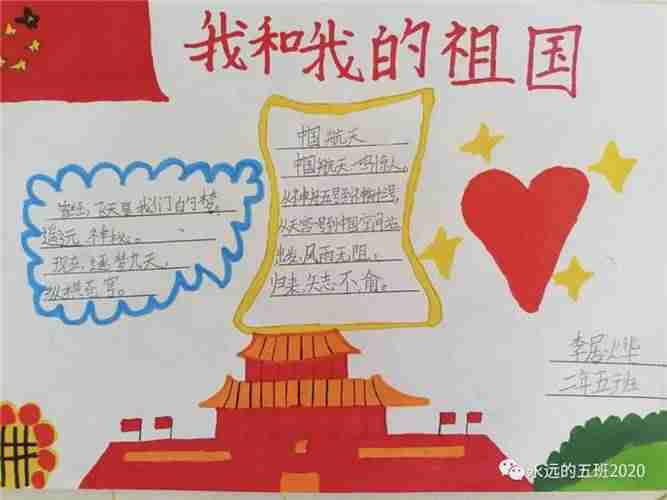 我和我的祖国
中国航天
中国航天一鸣惊人。
从神舟五号到神舟十二号,
从天宫一号到中国空间站
出发,风雨无阻。
归来,矢志不渝。
曾经,飞天是我们的梦,
遥远,神秘。
现在,逐梦九天,
纵横苍穹。
二年五班
永远的五班2020